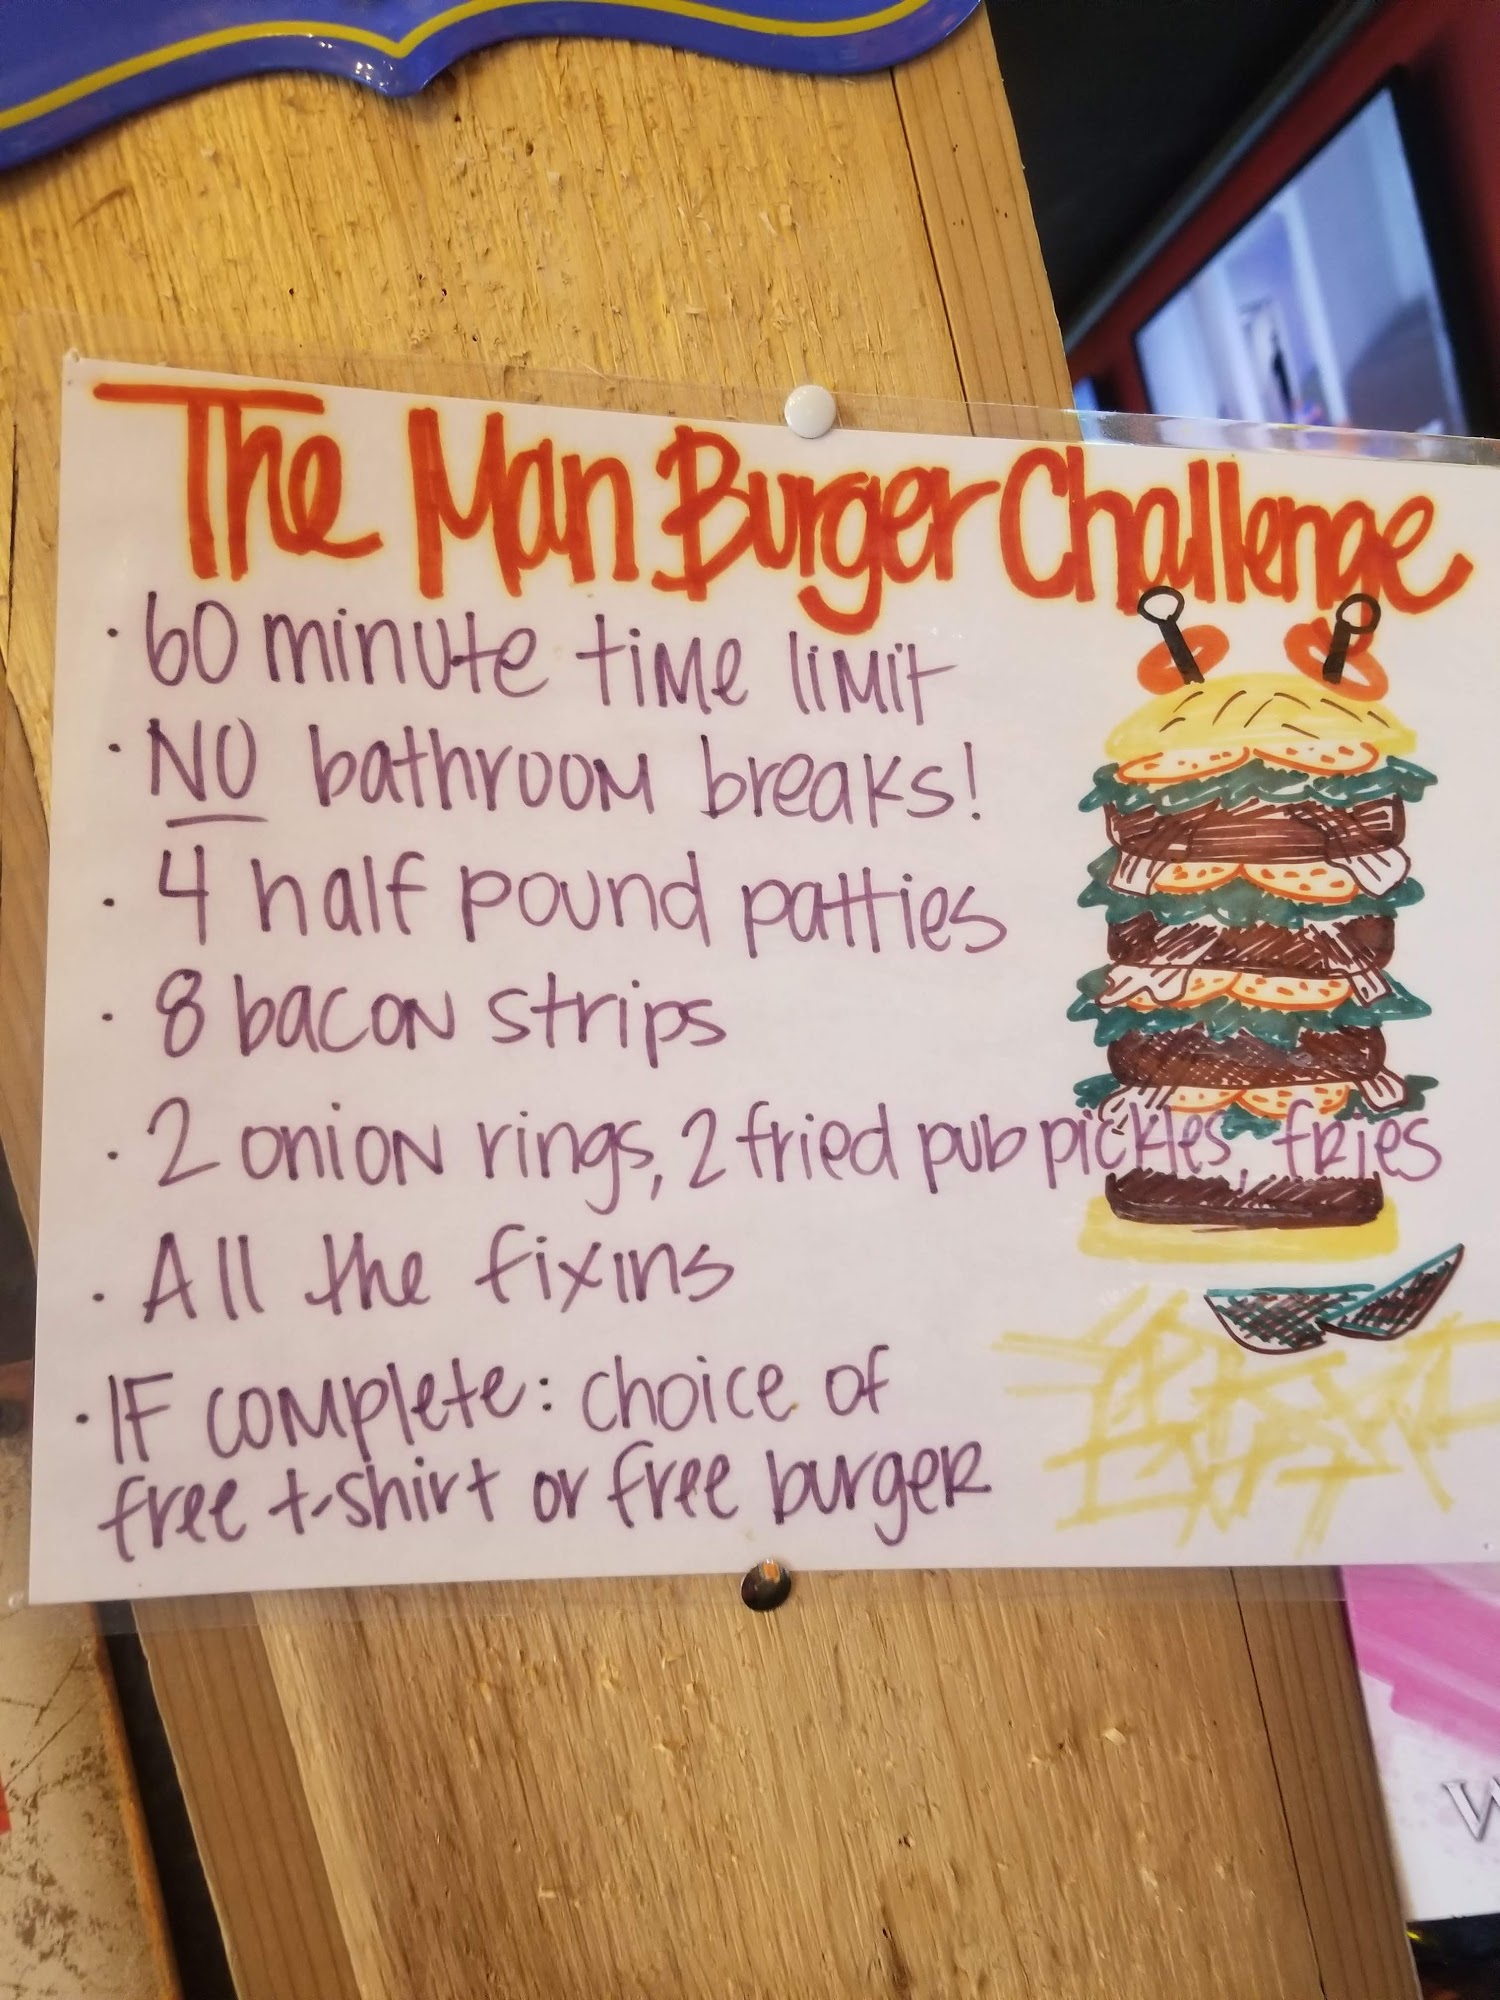 The Man Burger Challenge
· 60 minute time limit
· NO bathroom breaks!
· 4 half pound patties
· 8 bacon strips
· 2 onion rings, 2 fried pub pickles, fries
· All the fixins
· IF complete: choice of
free t-shirt or free burger